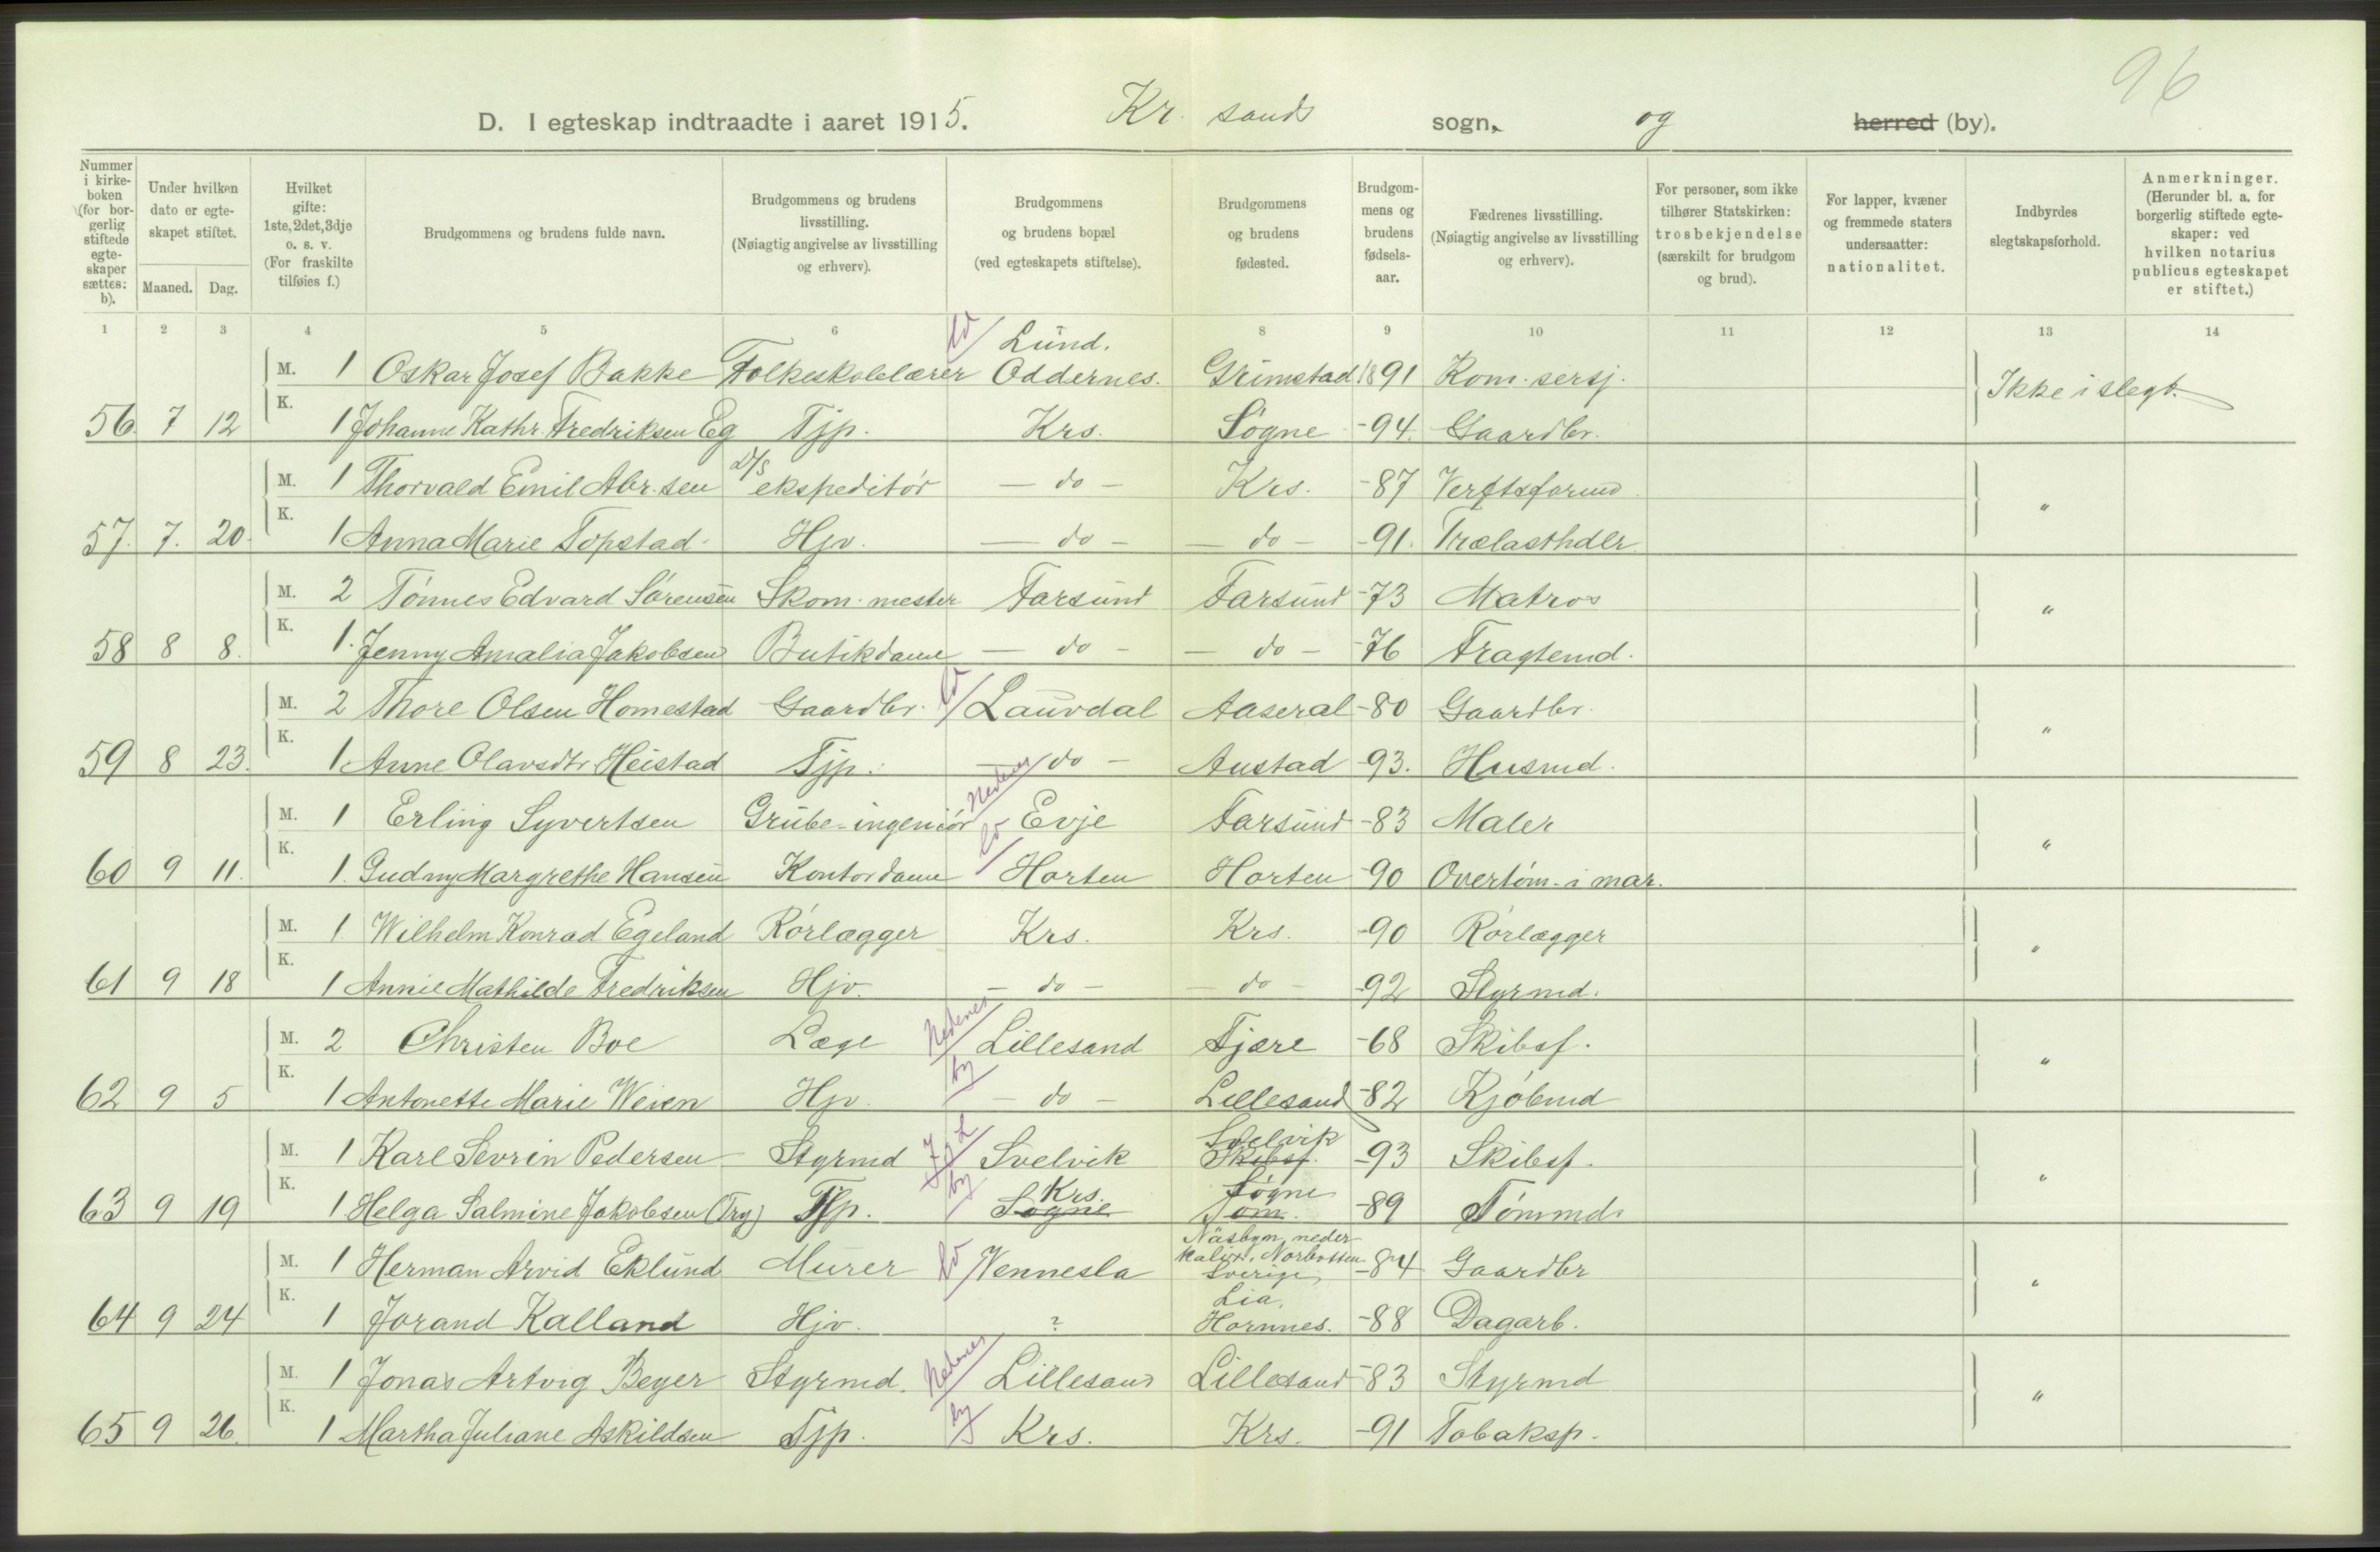 96
D. I egteskap indtraadte i aaret 1915. Kr. sands sogn, og herred (by).
Nummer i kirkeboken (for borgerlig stiftede egteskaper sættes: b).
Under hvilken dato er egteskapet stiftet.
Maaned. Dag.
Hvilket gifte: 1ste, 2det, 3dje o. s. v. (For fraskilte tilføies f.)
Brudgommens og brudens fulde navn.
Brudgommens og brudens livsstilling. (Nøiagtig angivelse av livsstilling og erhverv).
Brudgommens og brudens bopæl (ved egteskapets stiftelse).
Brudgommens og brudens fødested.
Brudgommens og brudens fødselsaar.
Fædrenes livsstilling. (Nøiagtig angivelse av livsstilling og erhverv).
For personer, som ikke tilhører Statskirken: trosbekjendelse (særskilt for brudgom og brud).
For lapper, kvæner og fremmede staters undersaatter: nationalitet.
Indbyrdes slegtskapsforhold.
Anmerkninger. (Herunder bl. a. for borgerlig stiftede egteskaper: ved hvilken notarius publicus egteskapet er stiftet.)
1 2 3 4 5 6 8 9 10 11 12 13 14
Lund.
M. 1 Oskar Josef Bakke Folkeskolelærer Oddernes. Grimstad 1891 Kom. sersj. Ikke i slegt.
56. 7 12 K. 1 Johanne Kathr. Fredriksen Eg Tjp. Krs. Søgne -94. Gaardbr.
M. 1 Thorvald Emil Abr.sen D/S ekspeditør — do — Krs. -87 Verftsformd.
57. 7. 20. K. 1 Anna Marie Topstad. Hjv. — do — — do — -91. Trælasthdlr. "
M. 2 Tønnes Edvard Sørensen Skom. mester Farsund Farsund -73 Matros
58 8 8. K. 1. Jenny Amalia Jakobsen Butikdame — do — — do — -76 Fragtemd. "
M. 2 Thore Olsen Homestad Gaardbr. Laurdal Aaseral -80 Gaardbr.
59 8 23. K. 1 Anne Olavsdtr. Heistad Tjp. — do — Austad -93. Husmd. "
M. 1 Erling Syvertsen Grube-ingeniør Nedenes Evje Farsund -83 Maler
60 9 11. K. 1. Gudny Margrethe Hansen Kontordame Horten Horten -90 Overtøm. i mar. "
M. 1. Wilhelm Konrad Egeland Rørlægger Krs. Krs. -90 Rørlægger
61 9 18 K. 1 Annie Mathilde Fredriksen Hjv. — do — — do — -92 Styrmd. "
M. 2 Christen Boe Læge Nedenes Lillesand Fjære -68 Skibsf.
62 9 5 K. 1 Antonette Marie Weien Hjv. by — do — Lillesand -82 Kjøbmd "
M. 1 Karl Sevrin Pedersen Styrmd J. og L Svelvik Svelvik Skibsf. -93 Skibsf.
63 9 19 K. 1 Helga Salmine Jakobsen (Try) Tjp. by Krs. Søgne Søgne Tøm. -89 Tømmd. "
M. 1 Herman Arvid Eklund Murer Vennesla Näsbyn, neder Kalix, Norbotten Sverige, -84 Gaardbr
64 9 24 K. 1 Jorand Kalland Hjv. ? Lia, Hornnes. -88 Dagarb. "
M. 1 Jonas Artvig Beyer Styrmd. Nedenes Lillesand Lillesand -83 Styrmd
65 9 26. K. 1 Martha Juliane Askildsen Tjp. by Krs. Krs. -91 Tobaksp. "